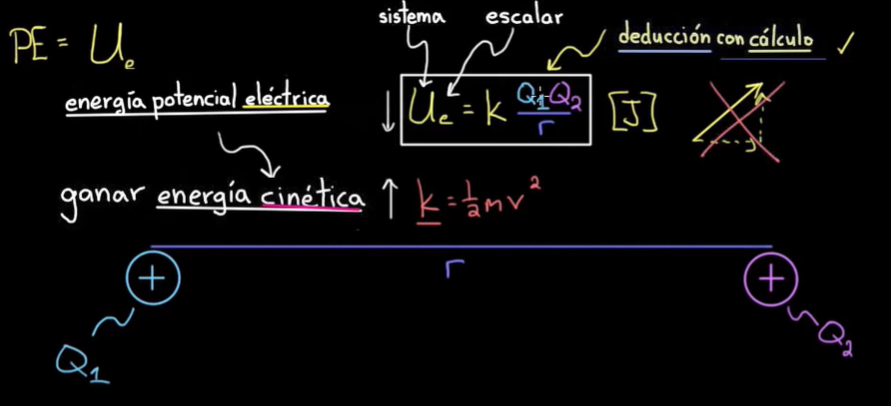 sistema escalar
PE = Uₑ
deducción con cálculo ✓
energía potencial eléctrica
↓ Uₑ = k Q₁Q₂/r [J]
ganar energía cinética ↑ k = ½mv²
r
+ +
Q₁ Q₂